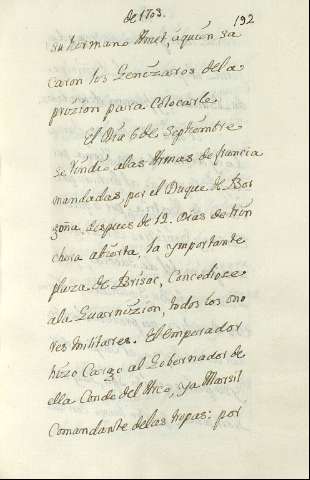 de 1703.
192
su hermano Amet, áquien sa
caron los Genízaros de la
prizion para Colocarle
El Dia 6 de Septiembre
se rindio alas Armas de francia
mandadas, por el Duque de Bor
goña, despues de 12. Dias de trin
chera abierta, la ymportante
plaza de Brisac, Concediose
ala Guarnizion, todos los ono
res militares. El Emperador
hizo Cargo al Gobernador de
ella Conde del Arco, y a Marsil
Comandante de las tropas: por